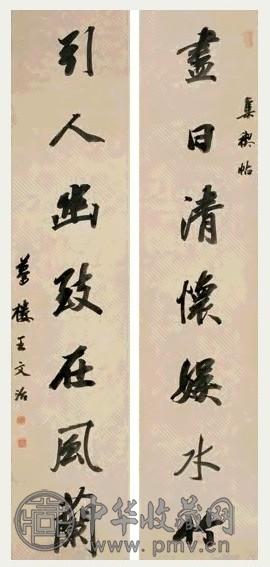 集禊帖
盡日清懷娱水竹
引人幽致在風蘭
夢樓王文治
中华收藏网
www.pmv.cn